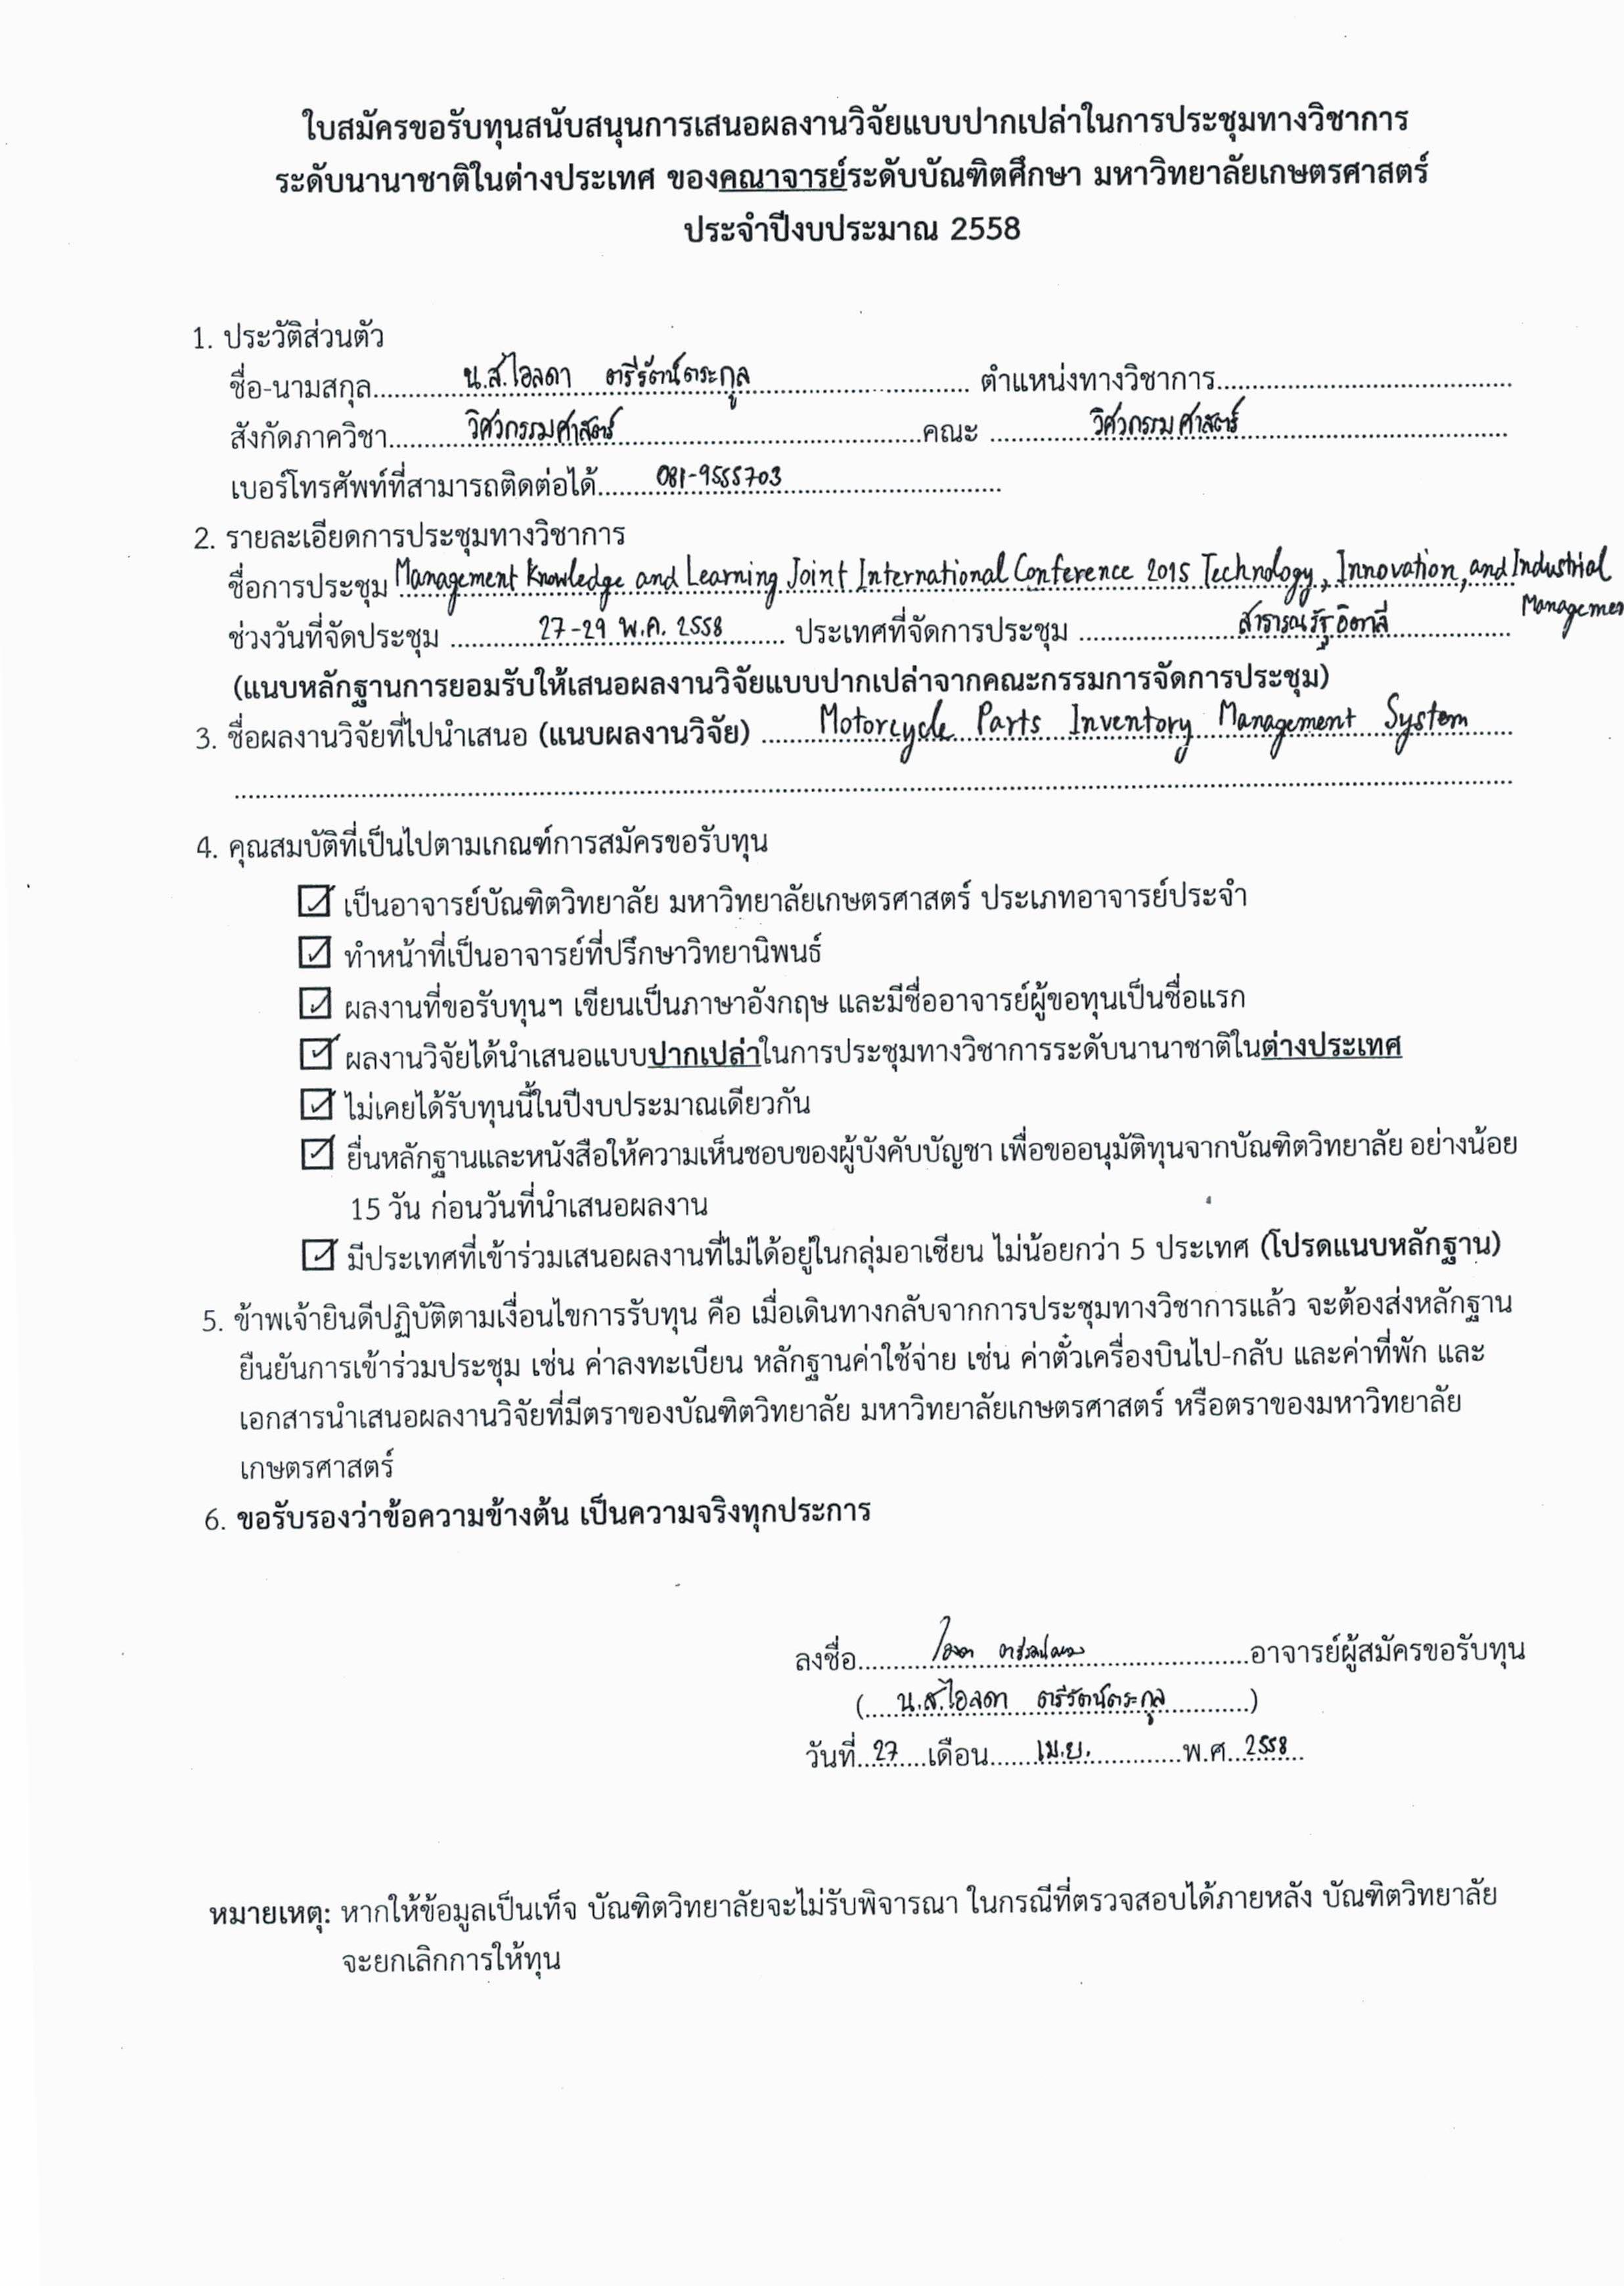 ใบสมัครขอรับทุนสนับสนุนการเสนอผลงานวิจัยแบบปากเปล่าในการประชุมทางวิชาการ
ระดับนานาชาติในต่างประเทศ ของคณาจารย์ระดับบัณฑิตศึกษา มหาวิทยาลัยเกษตรศาสตร์
ประจำปีงบประมาณ 2558
1. ประวัติส่วนตัว
ชื่อ-นามสกุล น.ส.ไอลดา ตรีรัตน์ตระกูล ตำแหน่งทางวิชาการ
สังกัดภาควิชา วิศวกรรมศาสตร์ คณะ วิศวกรรมศาสตร์
เบอร์โทรศัพท์ที่สามารถติดต่อได้ 081-9555703
2. รายละเอียดการประชุมทางวิชาการ
ชื่อการประชุม Management Knowledge and Learning Joint International Conference 2015 Technology, Innovation, and Industrial
Managemen
ช่วงวันที่จัดประชุม 27-29 พ.ค. 2558 ประเทศที่จัดการประชุม สาธารณรัฐอิตาลี
(แนบหลักฐานการยอมรับให้เสนอผลงานวิจัยแบบปากเปล่าจากคณะกรรมการจัดการประชุม)
3. ชื่อผลงานวิจัยที่ไปนำเสนอ (แนบผลงานวิจัย) Motorcycle Parts Inventory Management System
4. คุณสมบัติที่เป็นไปตามเกณฑ์การสมัครขอรับทุน
เป็นอาจารย์บัณฑิตวิทยาลัย มหาวิทยาลัยเกษตรศาสตร์ ประเภทอาจารย์ประจำ
ทำหน้าที่เป็นอาจารย์ที่ปรึกษาวิทยานิพนธ์
ผลงานที่ขอรับทุนฯ เขียนเป็นภาษาอังกฤษ และมีชื่ออาจารย์ผู้ขอทุนเป็นชื่อแรก
ผลงานวิจัยได้นำเสนอแบบปากเปล่าในการประชุมทางวิชาการระดับนานาชาติในต่างประเทศ
ไม่เคยได้รับทุนนี้ในปีงบประมาณเดียวกัน
ยื่นหลักฐานและหนังสือให้ความเห็นชอบของผู้บังคับบัญชา เพื่อขออนุมัติทุนจากบัณฑิตวิทยาลัย อย่างน้อย
15 วัน ก่อนวันที่นำเสนอผลงาน
มีประเทศที่เข้าร่วมเสนอผลงานที่ไม่ได้อยู่ในกลุ่มอาเซียน ไม่น้อยกว่า 5 ประเทศ (โปรดแนบหลักฐาน)
5. ข้าพเจ้ายินดีปฏิบัติตามเงื่อนไขการรับทุน คือ เมื่อเดินทางกลับจากการประชุมทางวิชาการแล้ว จะต้องส่งหลักฐาน
ยืนยันการเข้าร่วมประชุม เช่น ค่าลงทะเบียน หลักฐานค่าใช้จ่าย เช่น ค่าตั๋วเครื่องบินไป-กลับ และค่าที่พัก และ
เอกสารนำเสนอผลงานวิจัยที่มีตราของบัณฑิตวิทยาลัย มหาวิทยาลัยเกษตรศาสตร์ หรือตราของมหาวิทยาลัย
เกษตรศาสตร์
6. ขอรับรองว่าข้อความข้างต้น เป็นความจริงทุกประการ
ลงชื่อ อาจารย์ผู้สมัครขอรับทุน
( น.ส.ไอลดา ตรีรัตน์ตระกูล )
วันที่ 27 เดือน เม.ย. พ.ศ 2558
หมายเหตุ: หากให้ข้อมูลเป็นเท็จ บัณฑิตวิทยาลัยจะไม่รับพิจารณา ในกรณีที่ตรวจสอบได้ภายหลัง บัณฑิตวิทยาลัย
จะยกเลิกการให้ทุน